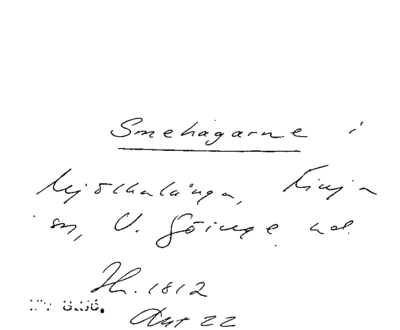 Smehagarne i
Mjölkalånga, Finja
sn, V. Göinge hd.
Hr. 1812
Ant 22